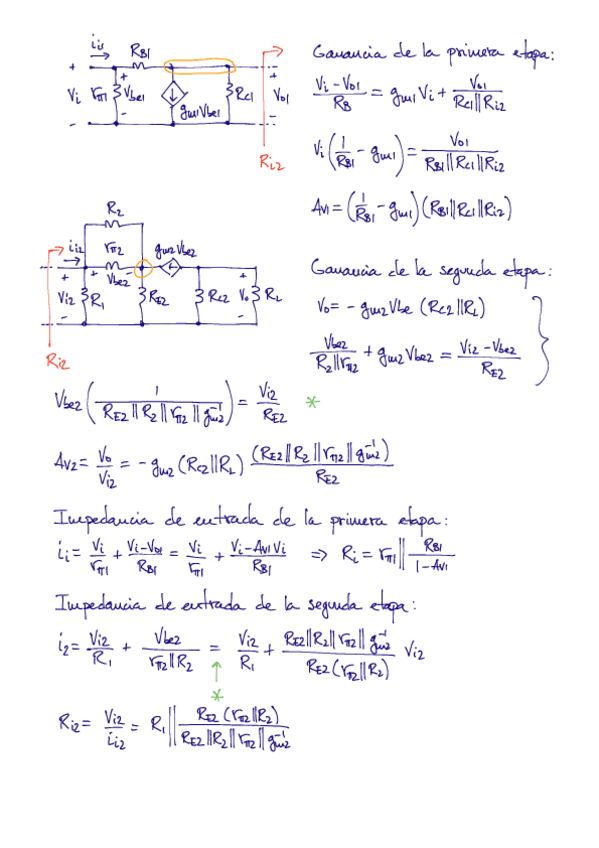 Ganancia de la primera etapa:
i_i1 R_B1
+ + + 
V_i r_π1 V_be1 g_m1V_be1 R_C1 V_o1
- - -
R_i2
(V_i - V_o1)/R_B = g_m1 V_i + V_o1/(R_C1||R_i2)
V_i (1/R_B1 - g_m1) = V_o1/(R_B1||R_C1||R_i2)
A_V1 = (1/R_B1 - g_m1)(R_B1||R_C1||R_i2)
R_2
i_i2 r_π2 g_m2V_be2
+ + V_be2 - +
V_i2 R_1 R_E2 R_C2 V_o R_L
- -
R_i2
Ganancia de la segunda etapa:
V_o = - g_m2 V_be (R_C2||R_L)
V_be2/(R_2||r_π2) + g_m2 V_be2 = (V_i2 - V_be2)/R_E2
V_be2 (1/(R_E2||R_2||r_π2||g_m2^-1)) = V_i2/R_E2 *
A_V2 = V_o/V_i2 = - g_m2 (R_C2||R_L) (R_E2||R_2||r_π2||g_m2^-1)/R_E2
Impedancia de entrada de la primera etapa:
i_i = V_i/r_π1 + (V_i-V_o1)/R_B1 = V_i/r_π1 + (V_i-A_V1 V_i)/R_B1 ⇒ R_i = r_π1 || R_B1/(1-A_V1)
Impedancia de entrada de la segunda etapa:
i_2 = V_i2/R_1 + V_be2/(r_π2||R_2) = V_i2/R_1 + (R_E2||R_2||r_π2||g_m2^-1)/(R_E2(r_π2||R_2)) V_i2
↑
*
R_i2 = V_i2/i_i2 = R_1 || (R_E2(r_π2||R_2))/(R_E2||R_2||r_π2||g_m2^-1)